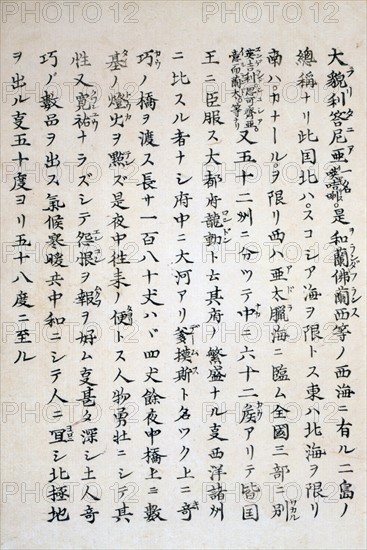 大貌利答尼亜一名諳厄利是和蘭佛蘭西等ノ西海ニ有ル二島ノ
總稱ナリ此国北ハスコシア海ヲ限トス東ハ北海ヲ限リ
南ハカナールヲ限リ西ハ亜太臘海ニ臨ム全國三部ニ別
意而蘭大等ナリ又五十二州ニ分ツテ中ニ六十二侯アリテ皆国
王ニ臣服ス大都府龍動トム其府ノ繁盛ナル叓西洋諸州
ニ比スル者ナシ府中ニ大河アリ爹摸斯ト名ツク上ニ奇
巧ノ橋ヲ渡ス長サ一百八十丈ハヾ四丈餘夜中橋上ニ數
基ノ燈火ヲ點ズ是夜中往来ノ便トス人物勇壮ニシテ其
性又寛裕ナラズシテ怨恨ヲ報ヲ好ム叓甚タ深シ土人奇
巧ノ數品ヲ出ス氣候寒暖共中和ニシテ人ニ冝シ北極地
ヲ出ル叓五十度ヨリ五十八度ニ至ル